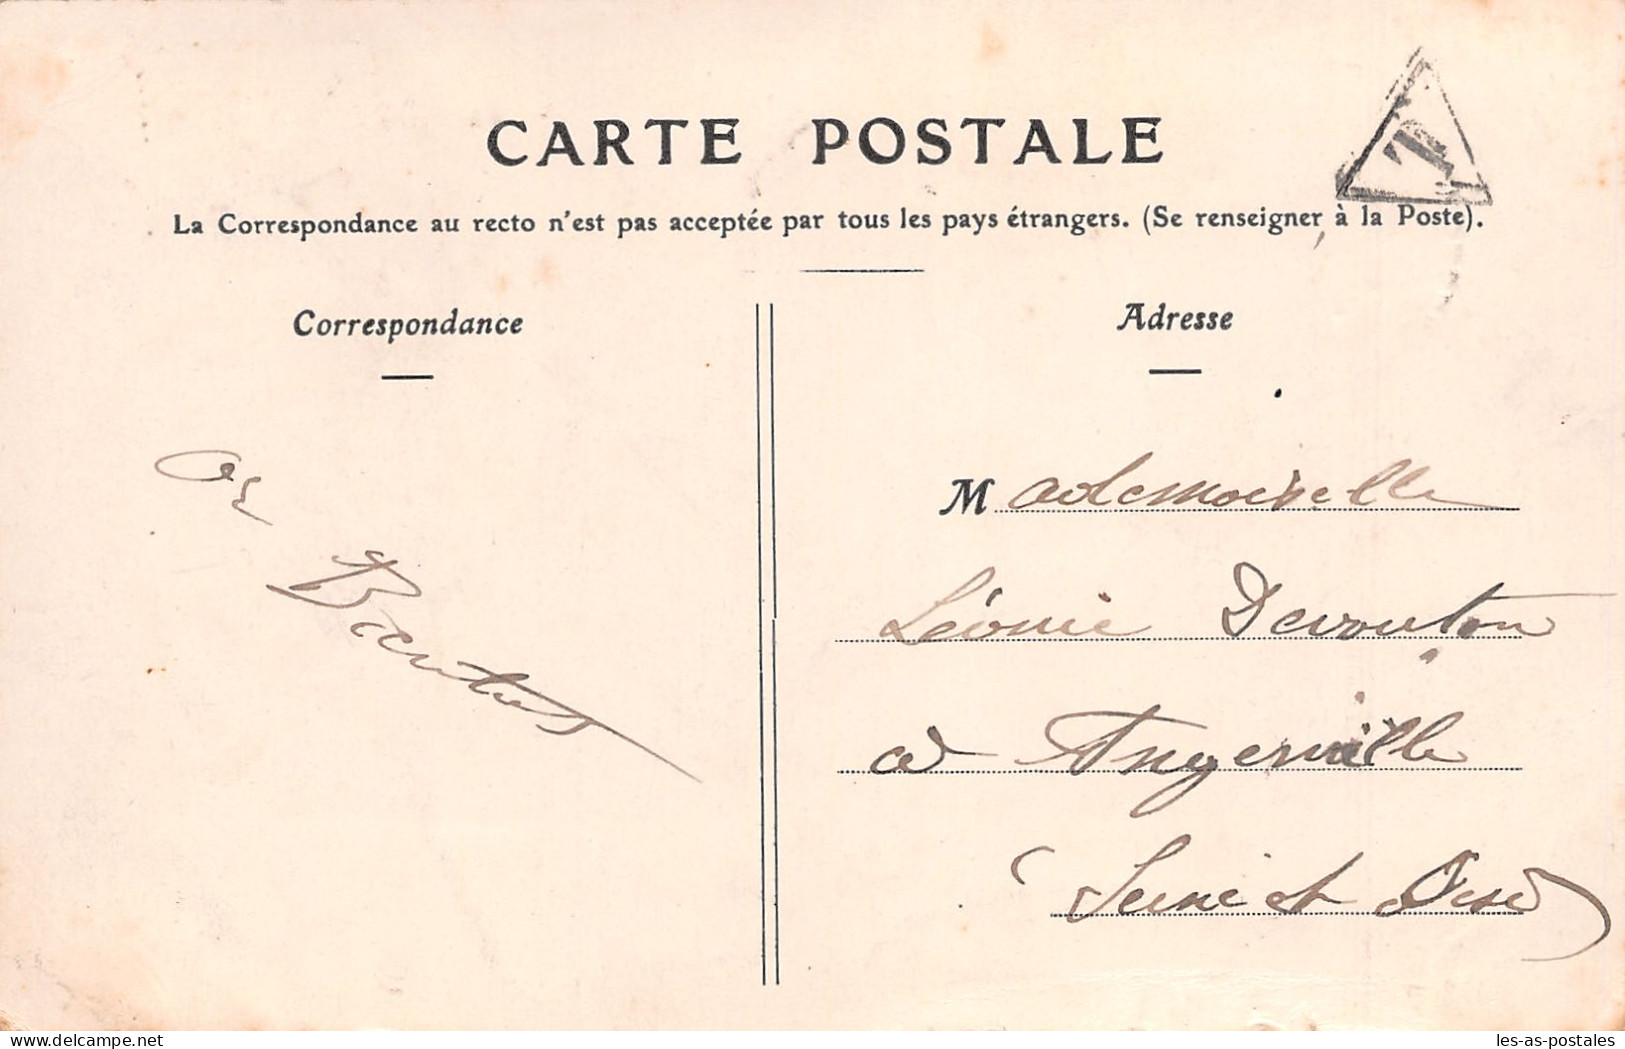 CARTE POSTALE
T
La Correspondance au recto n'est pas acceptée par tous les pays étrangers. (Se renseigner à la Poste).
Correspondance
Adresse
Mademoiselle
Léonie Devouton
à Angerville
(Seine et Oise)
delcampe.net
les-as-postales